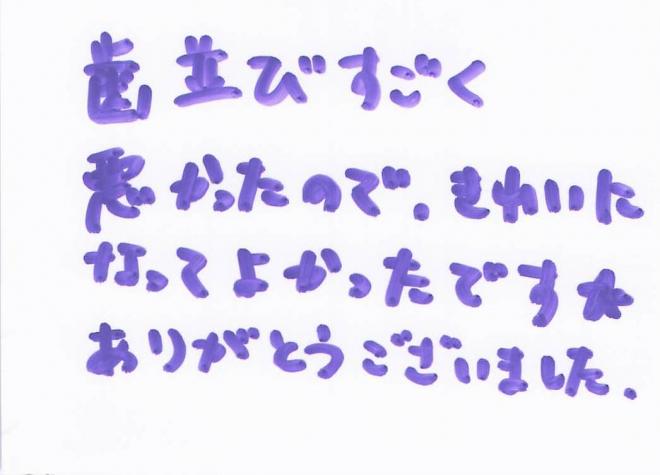 歯並びすごく
悪かったので.きれいた
なってよかったです☆
ありがとうございました.